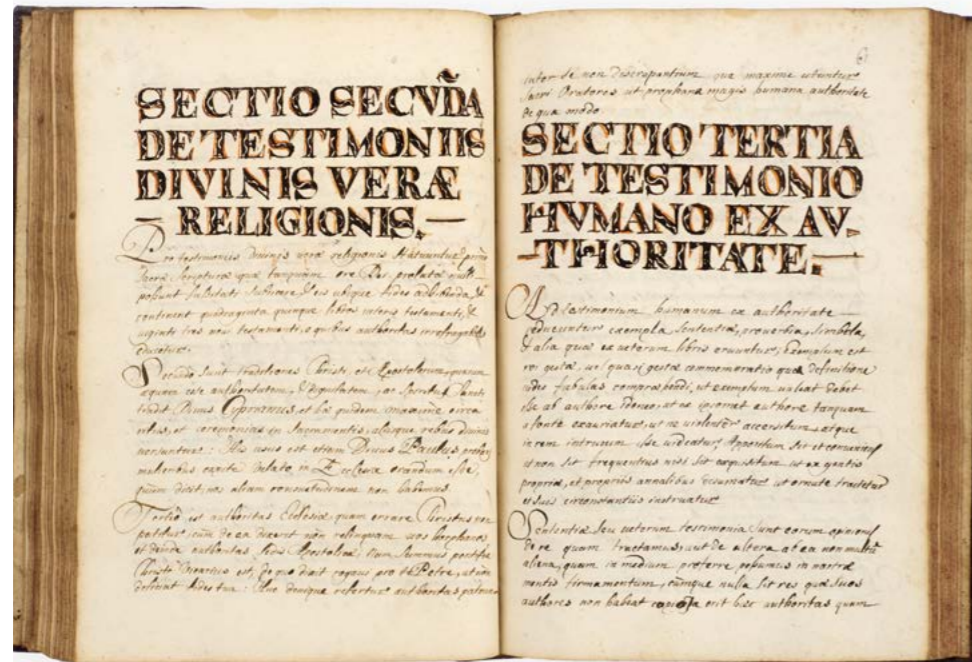 SECTIO SECVDÃ
DE TESTIMONIIS
DIVINIS VERÆ
RELIGIONIS.
Pro testimoniis divinis veræ religionis statuuntur primò
sacræ scripturæ quæ tanquam ore Dei prolatæ null
possunt falsitati subiacere, & eis ubique fides adhibenda, &
continent quadraginta quinque libros veteris testamenti, &
viginti tres novi testamenti, e quibus authoritas irrefragabilis
educitur.
Secundo sunt traditiones Christi, et Apostolorum, quarum
æquam esse authoritatem, & dignitatem, ac scripturæ sanctæ
tradit Divus Cyprianus, et hæ quidem maxime circa
ritus, et ceremonias in sacramentis, aliisque rebus divinis
versuntur: His usus est etiam Divus Paullus, probans
mulieribus capite velato in Ecclesia orandum esse,
quum dicit, nos aliam consuetudinem non habemus.
Tertiò est authoritas Ecclesiæ, quam errare Christus non
patitur, cum de ea dixerit non relinquam vos horphanos
et deinde authoritas sedis Apostolicæ, cum summus pontifex
Christi Vicarius est, de quo dixit rogavi pro te Petre, ut non
deficiat fides tua: Huc denique refertur authoritas patrum
inter se non discrepantium, quæ maxime utuntur
sacri Oratores ut prophana magis humana authoritate
de qua modo.
SECTIO TERTIA
DE TESTIMONIO
HVMANO EX AV-
-THORITATE.
Ad testimonium humanum ex authoritate
reducuntur exempla, sententiæ, proverbia, simbola,
& alia quæ ex veterum libris eruuntur; Exemplum est
rei gestæ, vel quasi gestæ commemoratio qua definitione
vides fabulas compræhendi, ut exemplum valeat debet
esse ab authore idoneo, ut ex ipsomet authore tanquam
a fonte exauriatur, ut ne violenter accersitum atque
in rem intrusum esse videatur; Appositum sit et conveniens
ut non sit frequentius nisi sit exquisitum, ut ex gentis
propriæ, et propriis annalibus desumatur, ut ornate tractetur
et suis circonstantiis instruatur
Sententiæ seu veterum testimonia sunt eorum opiniones
de re quam tractamus, aut de altera at ea non multū
aliena, quam in medium proferre possumus in nostræ
mentis firmamentum, cumque nulla sit res quæ suos
authores non habeat erit hæc authoritas quam